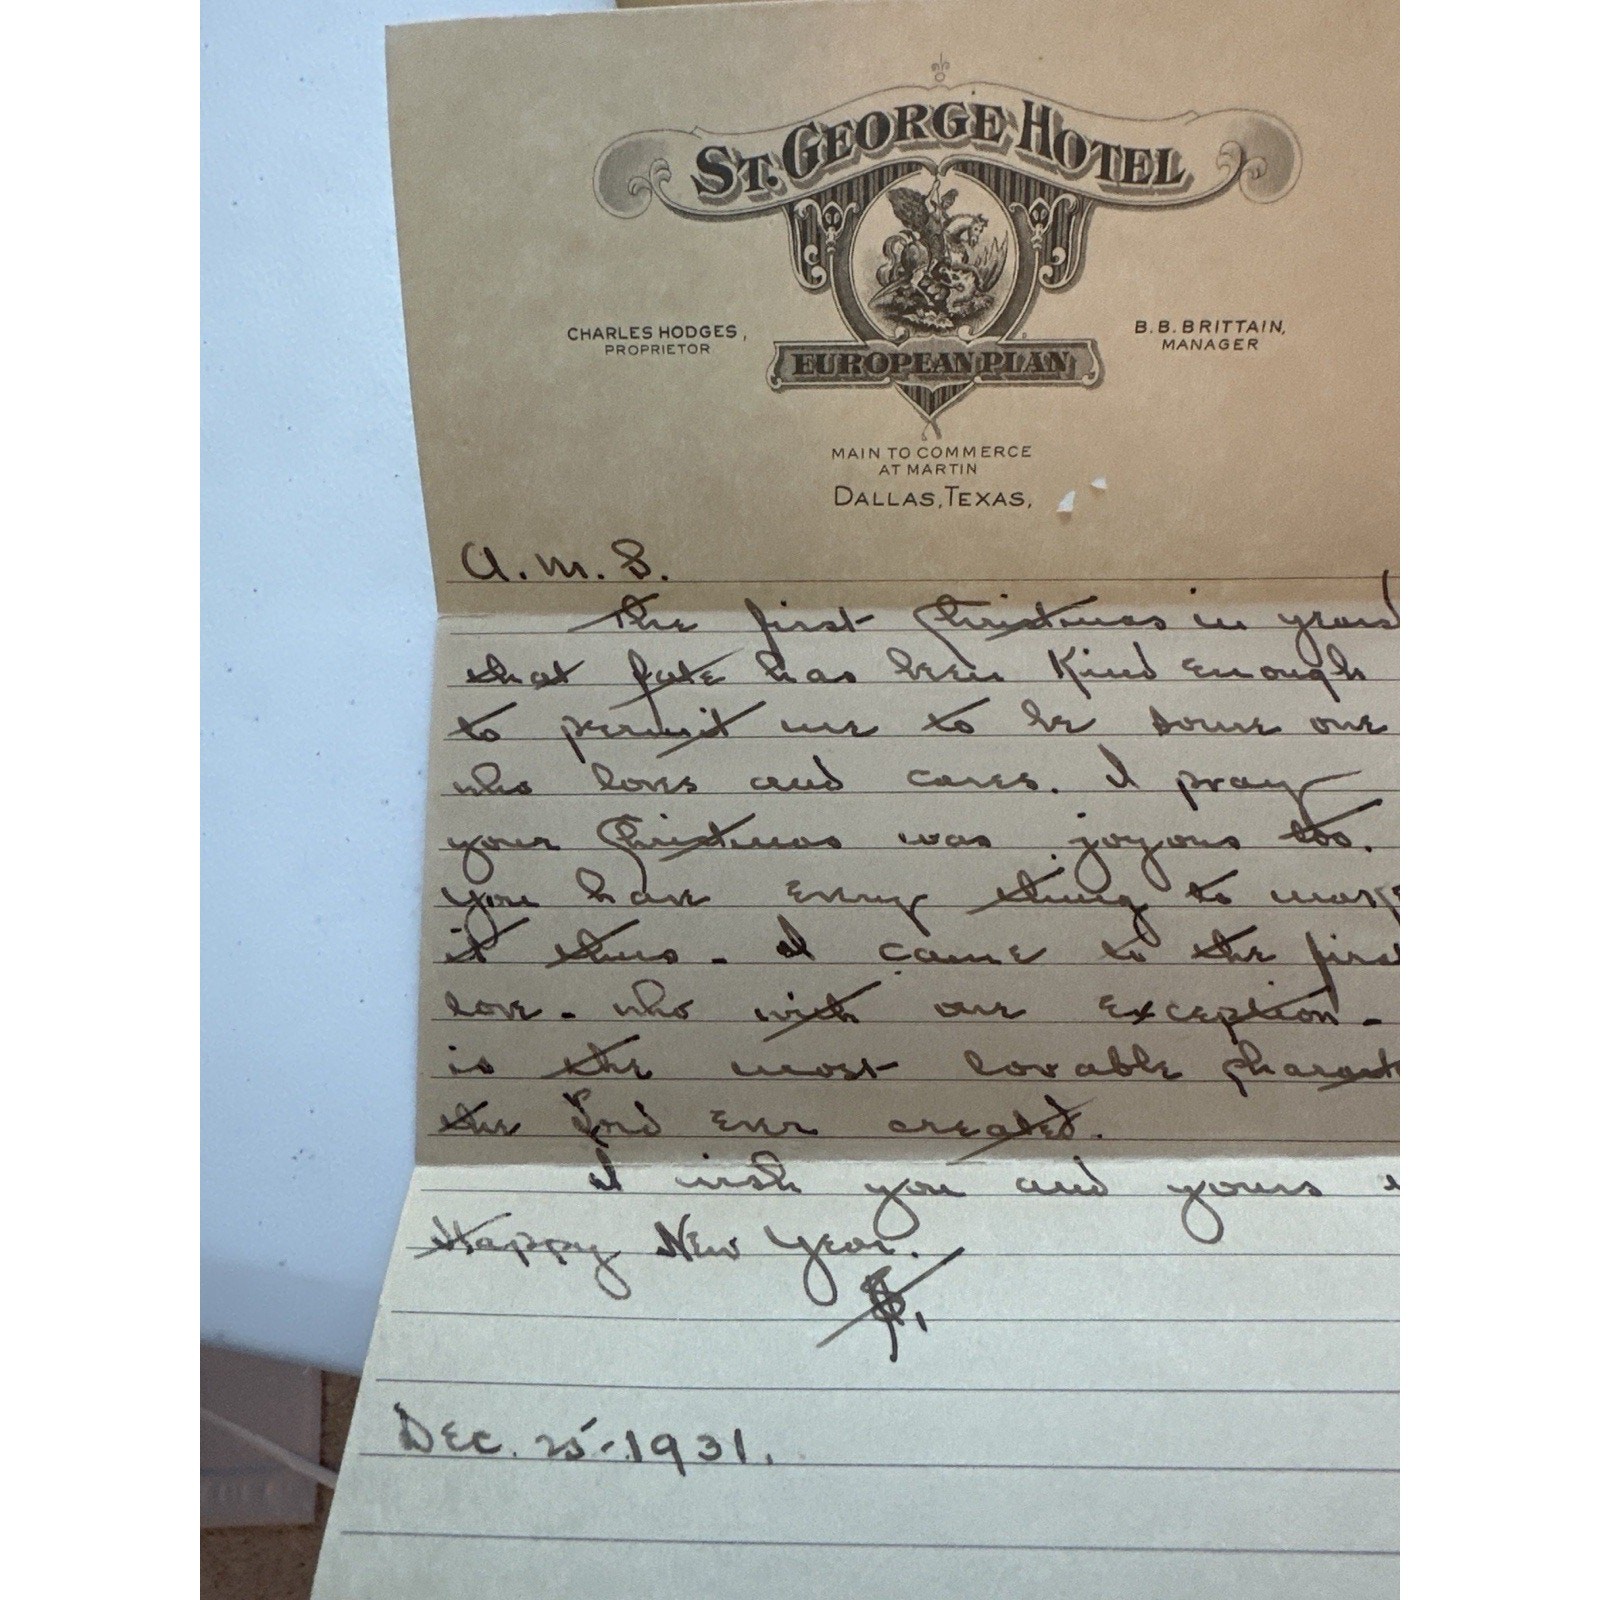 St. George Hotel
CHARLES HODGES,
PROPRIETOR
B. B. BRITTAIN,
MANAGER
EUROPEAN PLAN
MAIN TO COMMERCE
AT MARTIN
DALLAS, TEXAS,
A. M. S.
The first Christmas in years
that fate has been kind enough
to permit me to be some one
who loves and cares. I pray
your Christmas was joyous too.
you have every thing to make
it thus - I came to the first
love - who with one exception -
is the most lovable charact
the Lord ever created.
I wish you and yours
Happy New Year.
Dec. 25 - 1931.